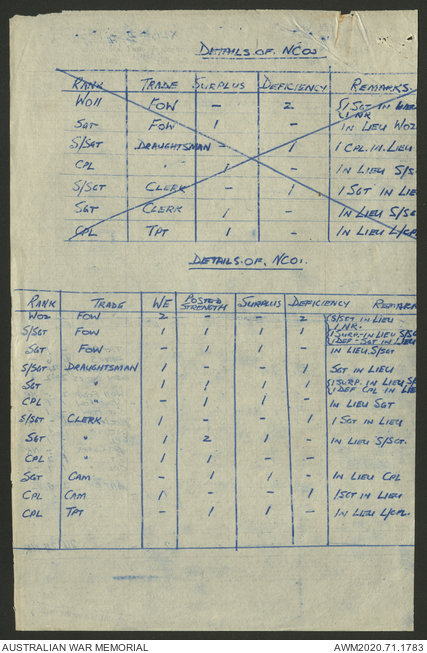 DETAILS OF NCOs
RANK TRADE SURPLUS DEFICIENCY REMARKS.
WO11 FOW – 2 1 SGT IN
1 NR
SGT FOW 1 – IN LIEU WO2
S/SGT DRAUGHTSMAN – 1 1 CPL. IN. LIEU
CPL " 1 – IN LIEU S/S
S/SGT CLERK – 1 1 SGT IN LIE
SGT CLERK 1 – IN LIEU S/SG
CPL TPT 1 – IN LIEU L/CPL
DETAILS. OF. NCOs.
RANK TRADE WE POSTED STRENGTH SURPLUS DEFICIENCY REMARK
WO2 FOW 2 – – 2 S/SGT IN LIEU
1 NR.
S/SGT FOW 1 1 1 1 1 SURP-IN LIEU S/SG
1 DEF-SGT IN LIEU
SGT FOW – 1 1 – IN LIEU, S/SGT
S/SGT DRAUGHTSMAN 1 – – 1 SGT IN LIEU
SGT " 1 1 1 1 1 SURP. IN LIEU S/
1 DEF CPL IN LIE
CPL " – 1 1 – IN LIEU SGT
S/SGT CLERK 1 – – 1 1 SGT IN LIEU
SGT " 1 2 1 – IN LIEU S/SGT.
CPL " 1 1 – –
SGT CAM – 1 1 – IN LIEU CPL
CPL CAM 1 – – 1 1 SGT IN LIEU
CPL TPT – 1 1 – IN LIEU L/CPL.
AUSTRALIAN WAR MEMORIAL AWM2020.71.1783